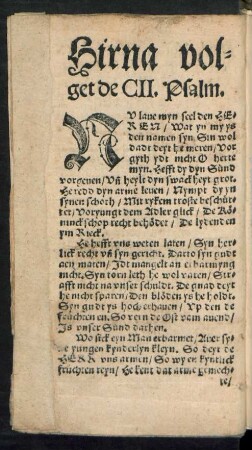 Hirna vol-
get de CII. Psalm.
NV lave myn seel den HE-
REN / Wat yn my ys
den namen syn. Sin wol
dadt deyt he meren / Vor
gyth ydt nicht O herte
myn. Hefft dy dyn Sünd
vorgeven / Vñ heylt dyn swackheyt grot.
He redd dyn arme leven / Nympt dy yn
synen schoth / Mit rykem troste beschüt-
tet / Voryungt dem Adler glick / De Kö-
ninck schop recht behödet / De lydende n
yn Rieck.
He hefft vns weten laten / Syn her-
lick recht vñ syn gericht. Darto syn gudt
aen maten / Idt mangelt an erbarmyng
nicht. Syn torn leth he wol varen / Str
afft nicht na vnser schuldt. De gnad deyt
he nicht sparen / Den blöden ys he holdt.
Syn gudt ys hoch erhaven / Vp den de
früchten en. So vern de Ost vam avend /
Is vnser Sünd darhen.
Wo sick eyn Man erbarmet / Aver sy-
ne yungen kynderlyn kleyn. So deyt de
HERR vns armen / So wy en kyntlick
früchten reyn / He kent dat arme gemech-
te /